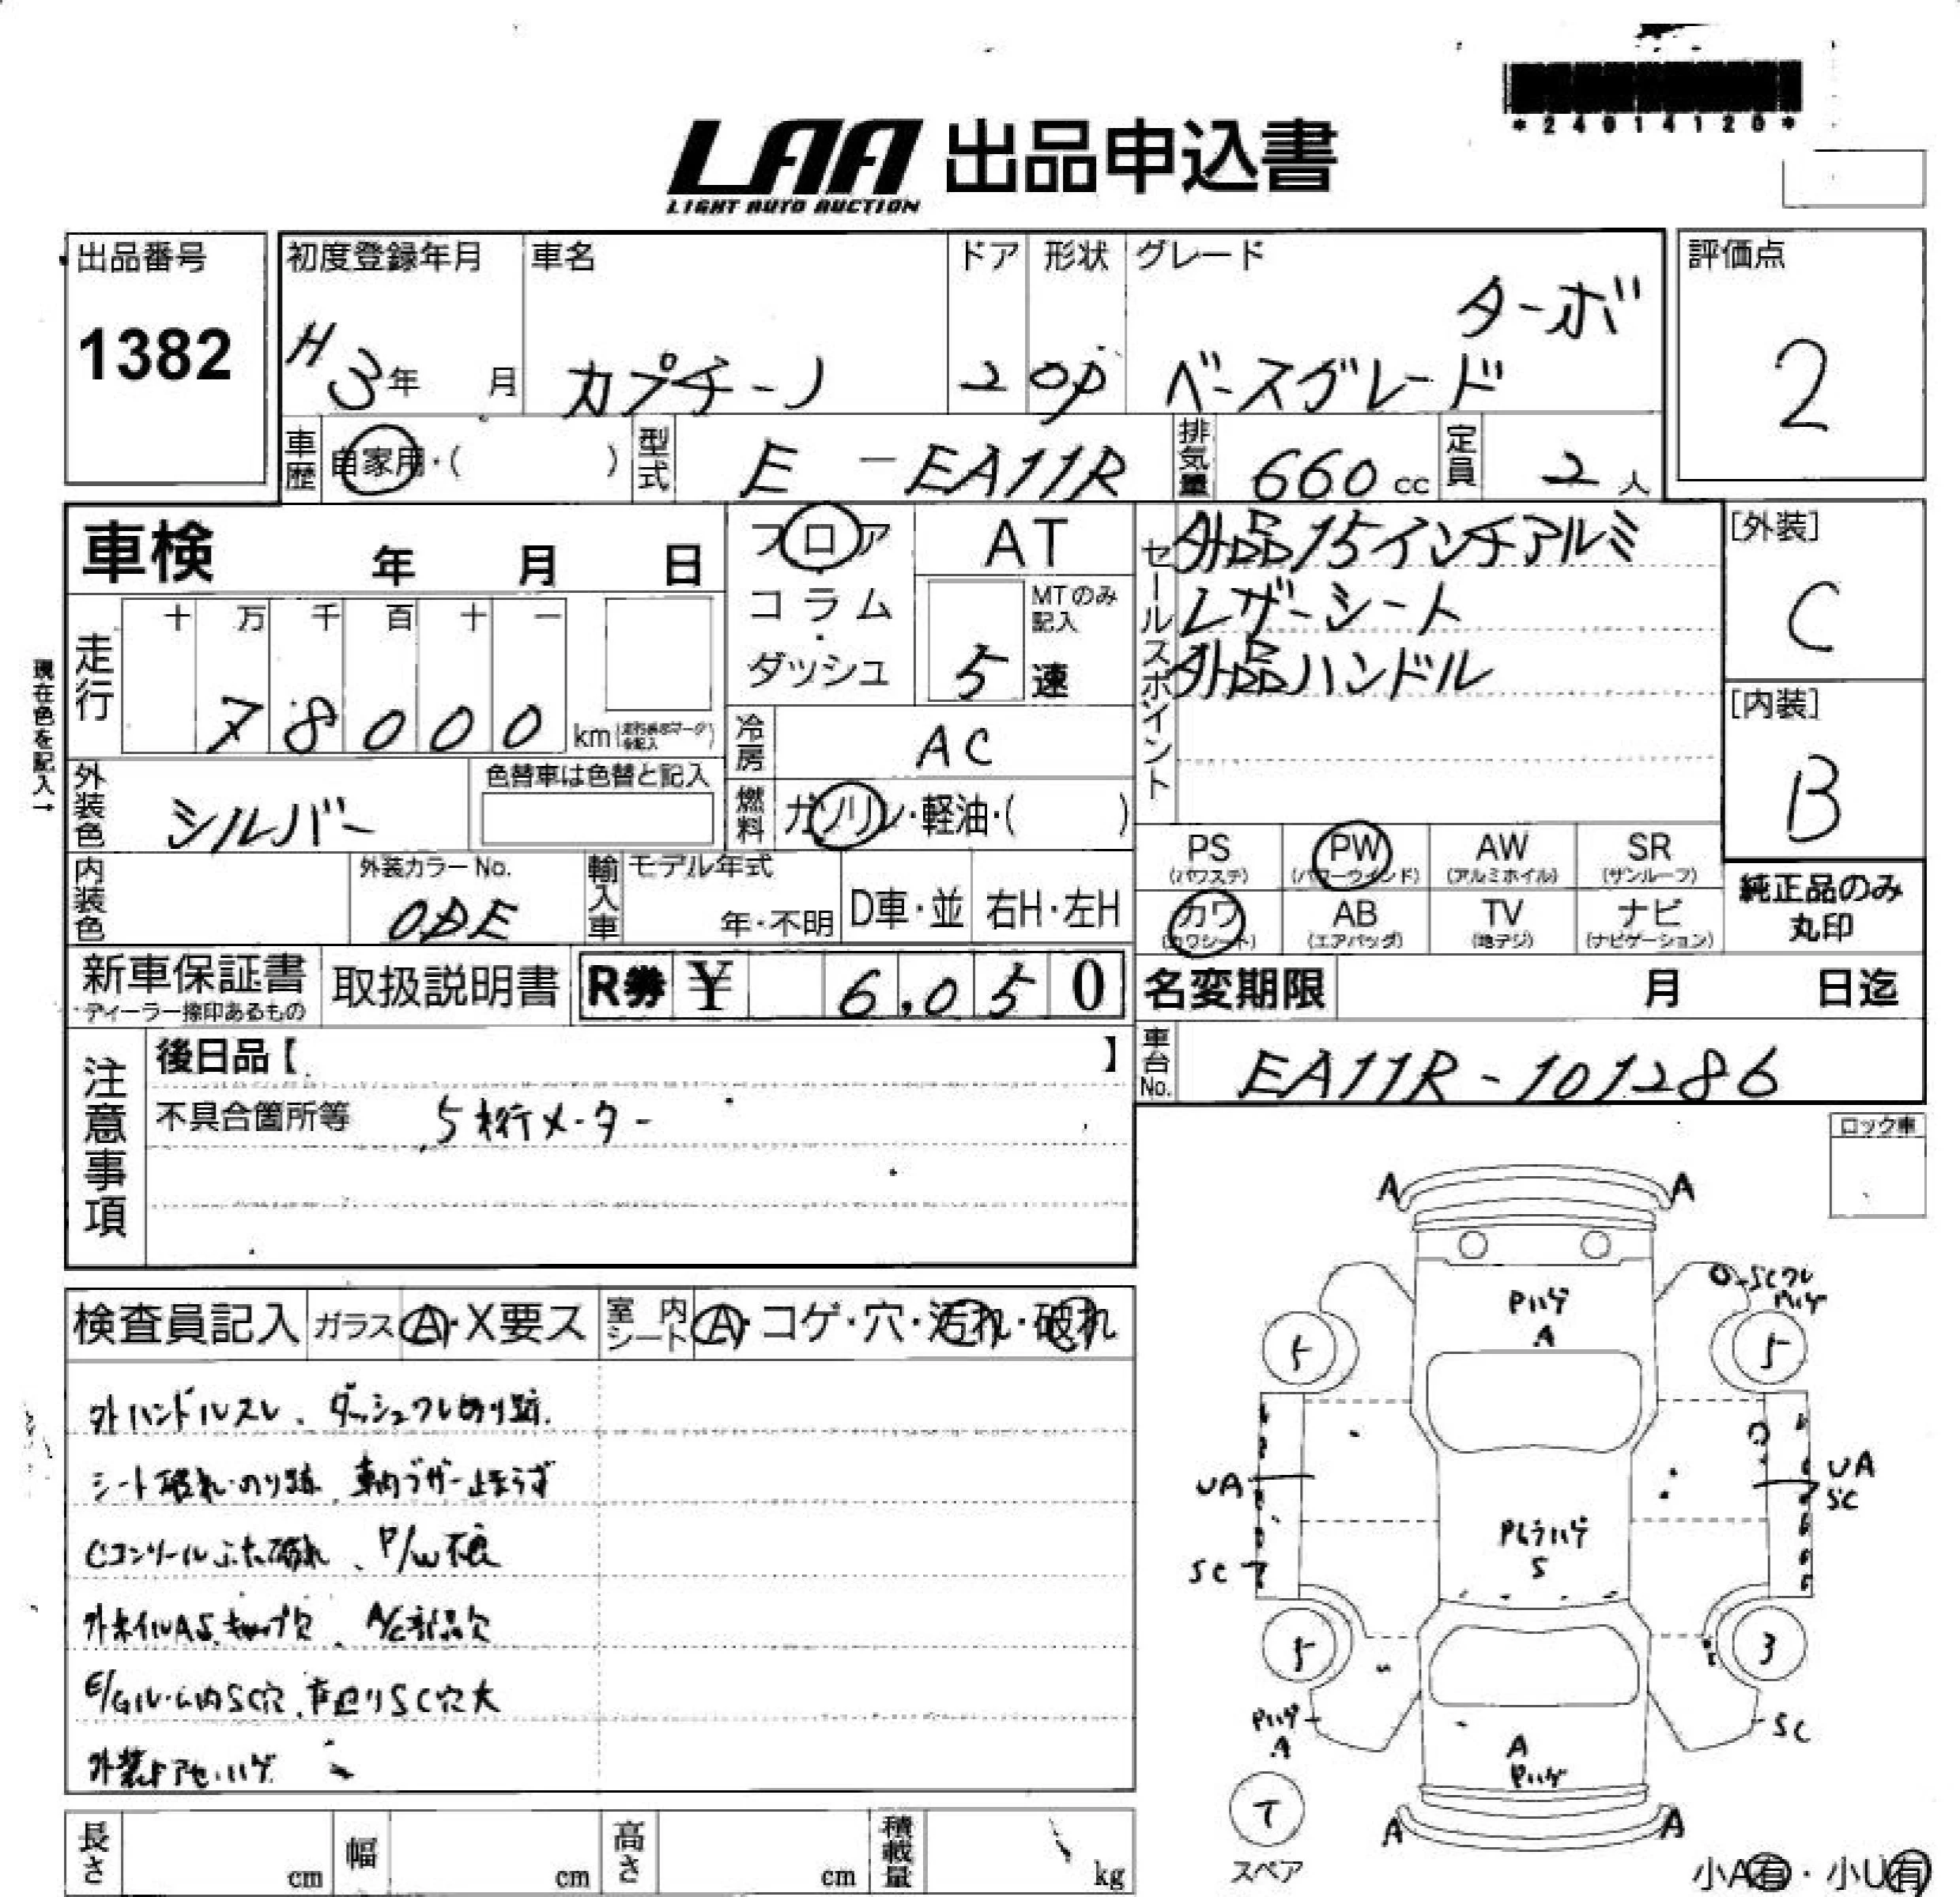 *24014120*
LAA 出品申込書
LIGHT AUTO AUCTION
出品番号
1382
初度登録年月 車名 ドア 形状 グレード
H3年 月 カプチーノ 2 OP ターボ
ベースグレード
評価点
2
車歴 自家用・( ) 型式 E-EA11R 排気量 660cc 定員 2人
車検 年 月 日
フロア・コラム・ダッシュ
AT
MTのみ記入
5速
走行
十 万 千 百 十 一
78000 km
現在色を記入→
冷房 AC
セールスポイント
外品15インチアルミ
レザーシート
外品ハンドル
[外装]
C
[内装]
B
外装色 シルバー 色替車は色替と記入
燃料 ガソリン・軽油・( )
PS PW AW SR
(パワステ) (パワーウインド) (アルミホイル) (サンルーフ)
カワ AB TV ナビ
(カワシート) (エアバッグ) (地デジ) (ナビゲーション)
純正品のみ
丸印
内装色 外装カラーNo. 輸入車 モデル年式
年・不明 D車・並 右H・左H
新車保証書 取扱説明書 R券 ¥ 6,050
ディーラー捺印あるもの
名変期限 月 日迄
車台No. EA11R-101286
注意事項
後日品【 】
不具合箇所等 5桁メーター
ロック車
検査員記入 ガラス A・X要ス 室内シート A・コゲ・穴・汚れ・破れ
外ハンドルスレ、ダッシュワレ切り跡
シート破れ・のり跡、車内ブザー止まらず
Cコンソールふた破れ、P/W不良
外ホイルAS、キャップ欠、A/C部品欠
E/Gルーム内SC穴、下廻りSC穴大
外装
A A
Pハゲ
A
SCワレ
Pハゲ
5 5
UA
UA
SC
SC
S
5 3
Pハゲ
A
SC
A
Pハゲ
T
スペア
A A
小A有・小U有
長さ cm 幅 cm 高さ cm 積載量 kg